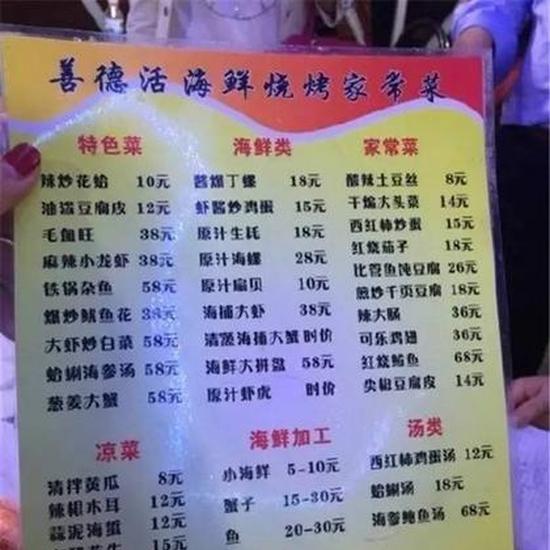 善德活海鲜烧烤家常菜
特色菜
辣炒花蛤 10元
油滋豆腐皮 12元
毛血旺 38元
麻辣小龙虾 38元
铁锅杂鱼 58元
爆炒鱿鱼花 38元
大虾炒白菜 58元
蛤蜊海参汤 58元
葱姜大蟹 58元
海鲜类
酱爆丁螺 18元
虾酱炒鸡蛋 15元
原汁生蚝 18元
原汁海螺 28元
原汁扇贝 10元
海捕大虾 38元
清蒸海捕大蟹 时价
海鲜大拼盘 58元
原汁虾虎 时价
家常菜
酸辣土豆丝 8元
干煸大头菜 14元
西红柿炒蛋 15元
红烧茄子 18元
比管鱼炖豆腐 26元
煎炒千页豆腐 18元
辣大肠 36元
可乐鸡翅 36元
红烧鲅鱼 68元
尖椒豆腐皮 14元
凉菜
清拌黄瓜 8元
辣根木耳 12元
蒜泥海蜇 12元
15元
海鲜加工
小海鲜 5-10元
蟹子 15-30元
鱼 20-30元
汤类
西红柿鸡蛋汤 12元
蛤蜊汤 18元
海参鲍鱼汤 68元